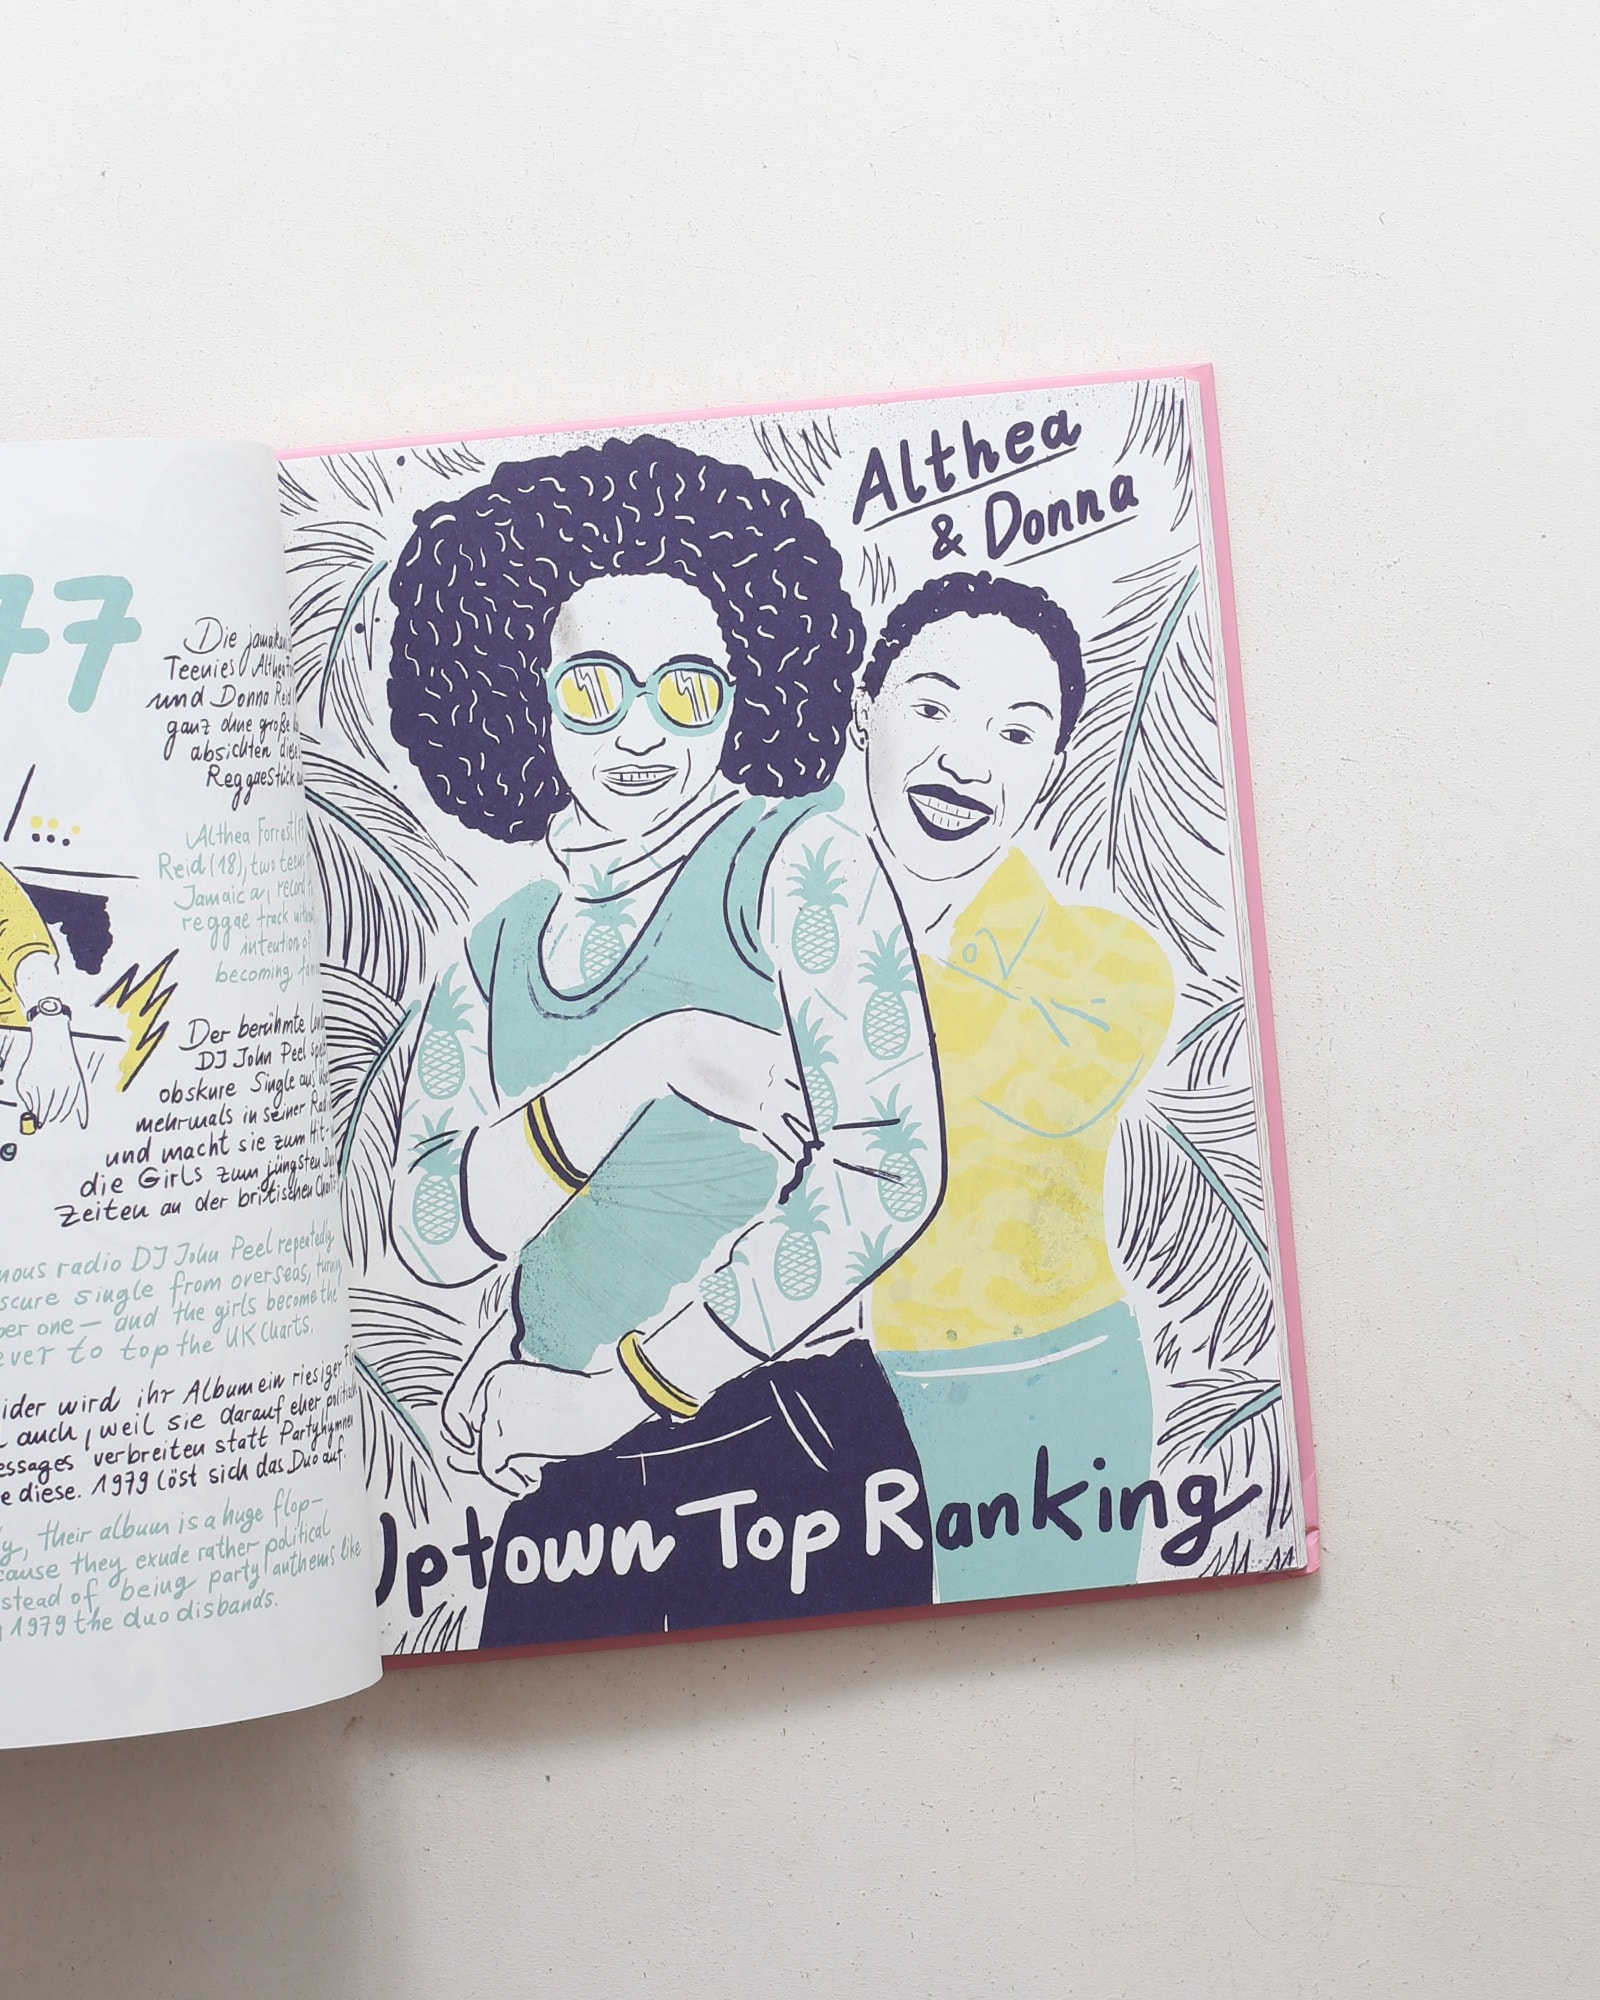 77
Die
Teenies Althea
und Donna Reid
ganz ohne große
absichten diese
Reggaestück
Althea Forrest
Reid (18), two teens
Jamaica, record
reggae track
intention of
becoming
Der berühmte
DJ John Peel
obskure Single aus
mehrmals in seiner
und macht sie zum Hit-
die Girls zum jüngsten
Zeiten an der britischen
radio DJ John Peel repeatedly
single from overseas, turning
one — and the girls become the
to top the UK Charts.
wird ihr Album ein riesiger
auch, weil sie darauf eher politisch
verbreiten statt Partyhymnen
diese. 1979 löst sich das Duo auf.
their album is a huge flop-
they exude rather political
of being party anthems like
1979 the duo disbands.
Althea
& Donna
Uptown Top Ranking